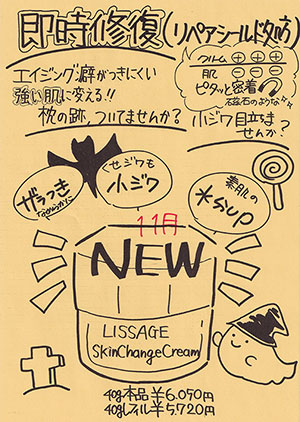 即時修復(リペアシールド処方)
エイジング癖がつきにくい
強い肌に変える!!
枕の跡、ついてませんか?
クリーム ⊕⊕⊕
肌 ⊖⊖⊖
ピタッと密着
磁石のような
小ジワ目立ちま
せんか?
ザラつき
なめらかに
くせジワも
小ジワ
素肌の
水分UP
11月
NEW
LISSAGE
SkinChangeCream
40g本品¥6.050円
40gレフィル¥5.720円